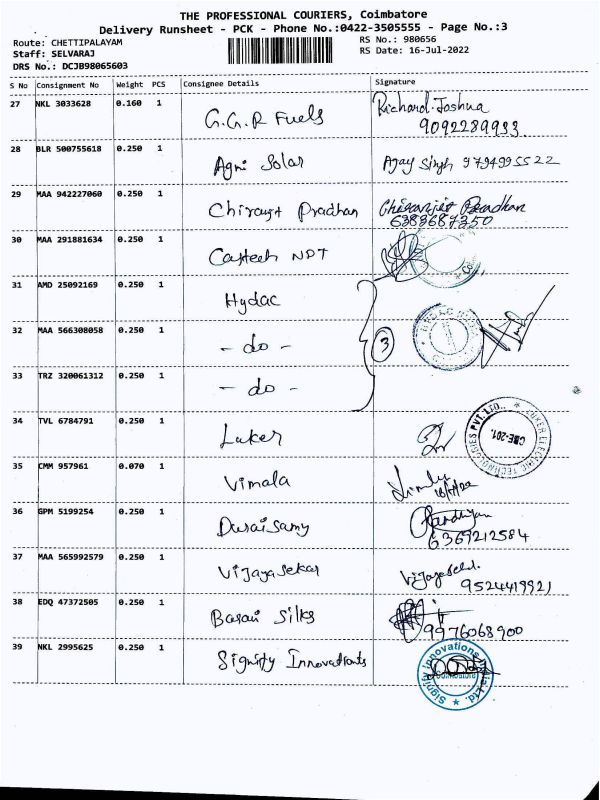 THE PROFESSIONAL COURIERS, Coimbatore
Delivery Runsheet - PCK - Phone No.:0422-3505555 - Page No.:3
Route: CHETTIPALAYAM RS No.: 980656
Staff: SELVARAJ RS Date: 16-Jul-2022
DRS No.: DCJB98065603
S No Consignment No Weight PCS Consignee Details Signature
27 NKL 3033628 0.160 1 G.G.R Fuels Richard.Joshua
9092289933
28 BLR 500755618 0.250 1 Agni Solar Ajay Singh 9794995522
29 MAA 942227060 0.250 1 Pradhan Pradhan
6383687350
30 MAA 291881634 0.250 1 NDT
31 AMD 25092169 0.250 1 Hydac
32 MAA 566308058 0.250 1 - do - 3
33 TRZ 320061312 0.250 1 - do -
34 TVL 6784791 0.250 1 Luker
LUKER ELECTRIC TECHNOLOGIES PVT. LTD. CBE-201.
35 CMM 957961 0.070 1 Vimala
36 GPM 5199254 0.250 1 Duraisamy
6369212584
37 MAA 565992579 0.250 1 Vijayasekar
9524419921
38 EDQ 47372505 0.250 1 Silks
9976068900
39 NKL 2995625 0.250 1 Signify Innovations
Signify Innovations India Ltd.